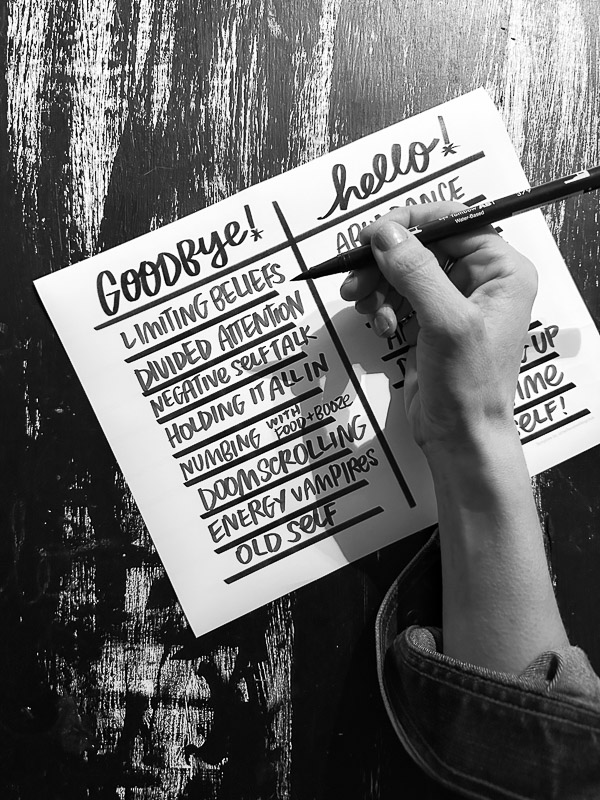 GOODBYE!
LIMITING BELIEFS
DIVIDED ATTENTION
NEGATIVE SELF TALK
HOLDING IT ALL IN
NUMBING WITH FOOD + BOOZE
DOOMSCROLLING
ENERGY VAMPIRES
OLD SELF
hello!
UP
Water-Based